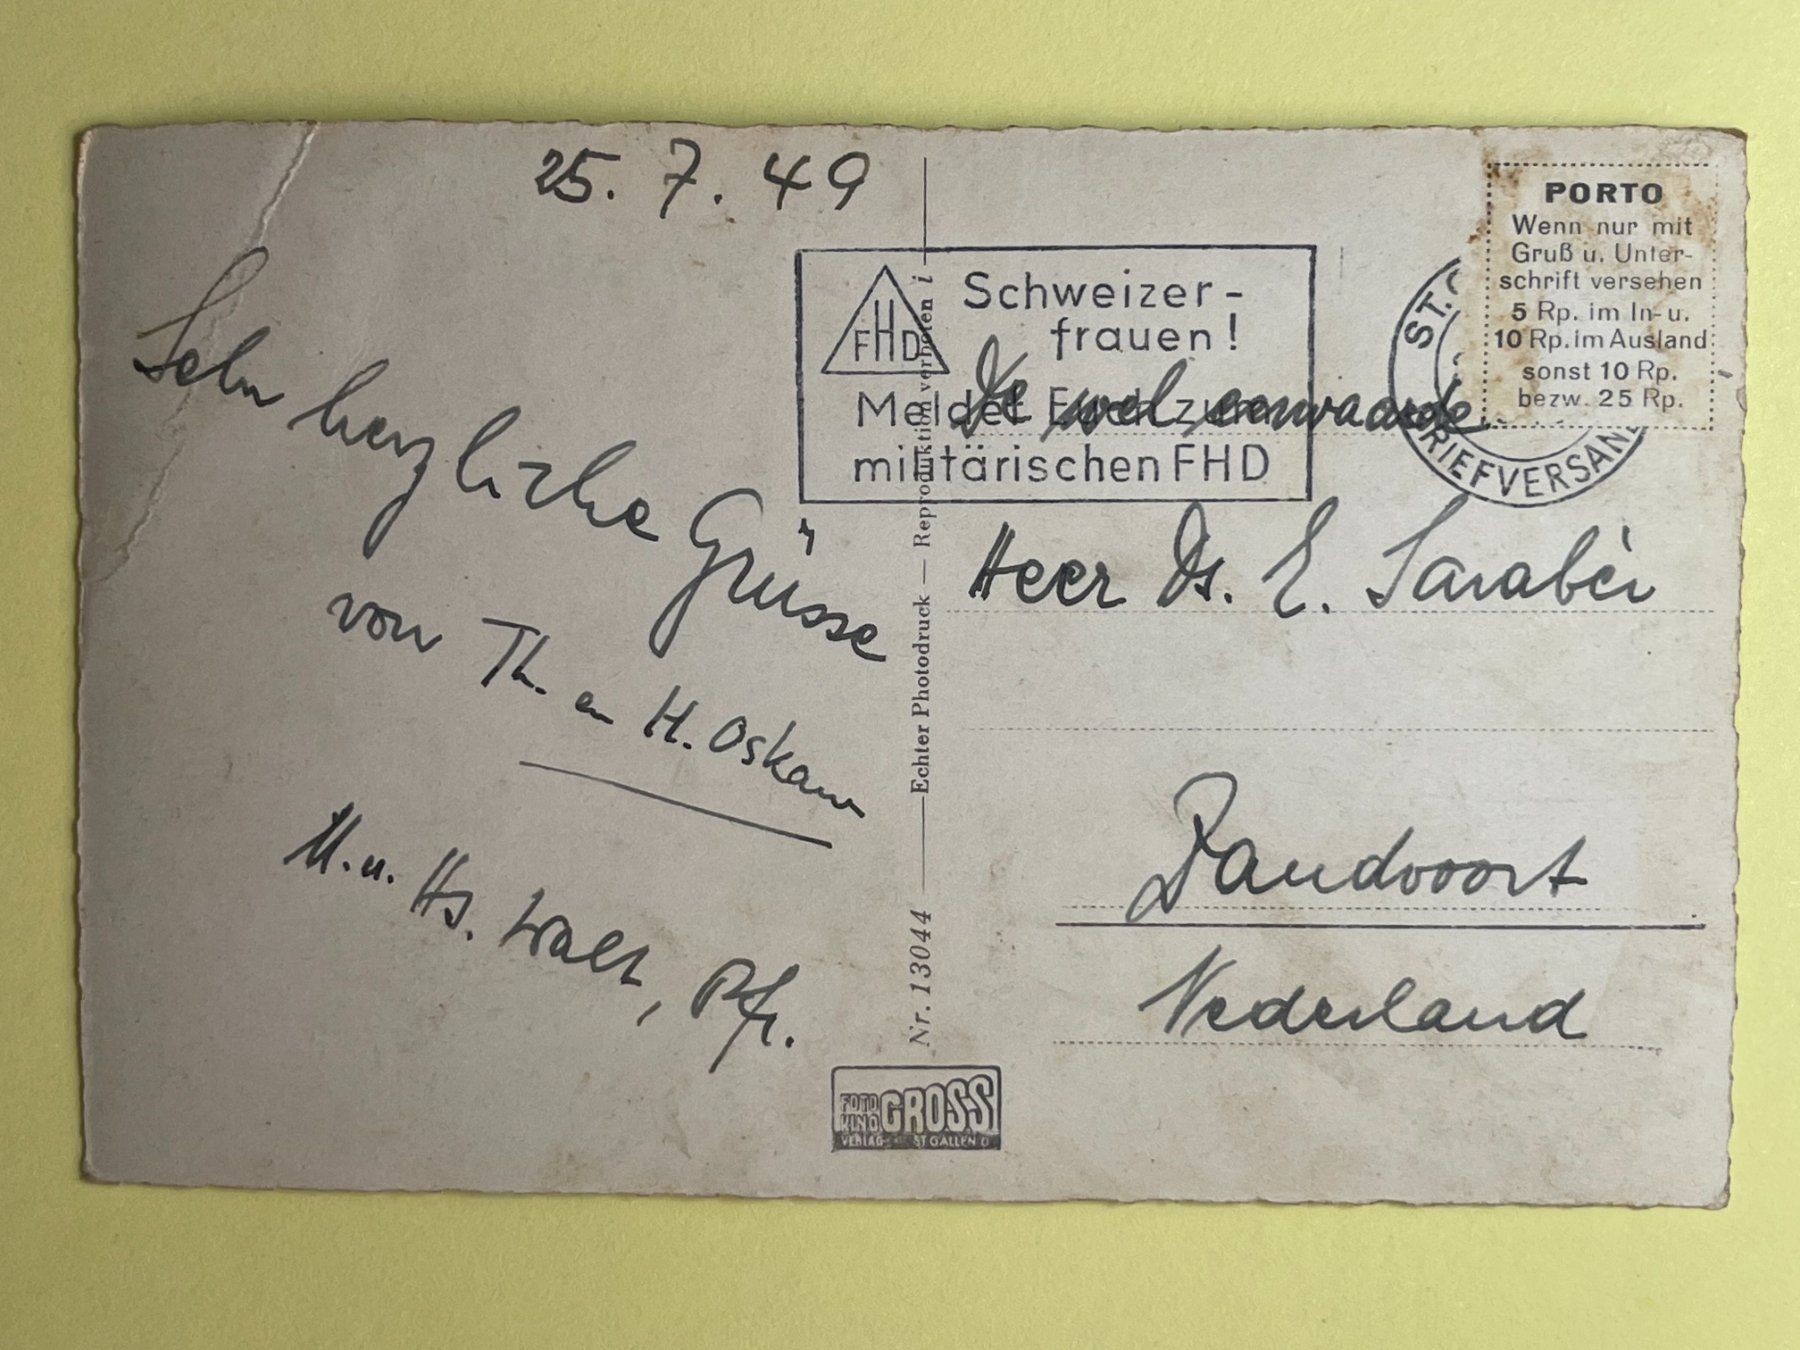 25. 7. 49
Sehr herzliche Grüsse
von Th. en H. Oskam
M. u. Hs. Walt, Pfr.
Nr. 13044 Echter Photodruck — Reproduktion verboten
FOTO
KINO GROSS
VERLAG ST GALLEN
FHD
Schweizer-
frauen!
Meldet Euch zum
militärischen FHD
ST.
BRIEFVERSAND
PORTO
Wenn nur mit
Gruß u. Unter-
schrift versehen
5 Rp. im In- u.
10 Rp. im Ausland
sonst 10 Rp.
bezw. 25 Rp.
wel eerwaarde
Heer Ds. E. Sarabèr
Zandvoort
Nederland